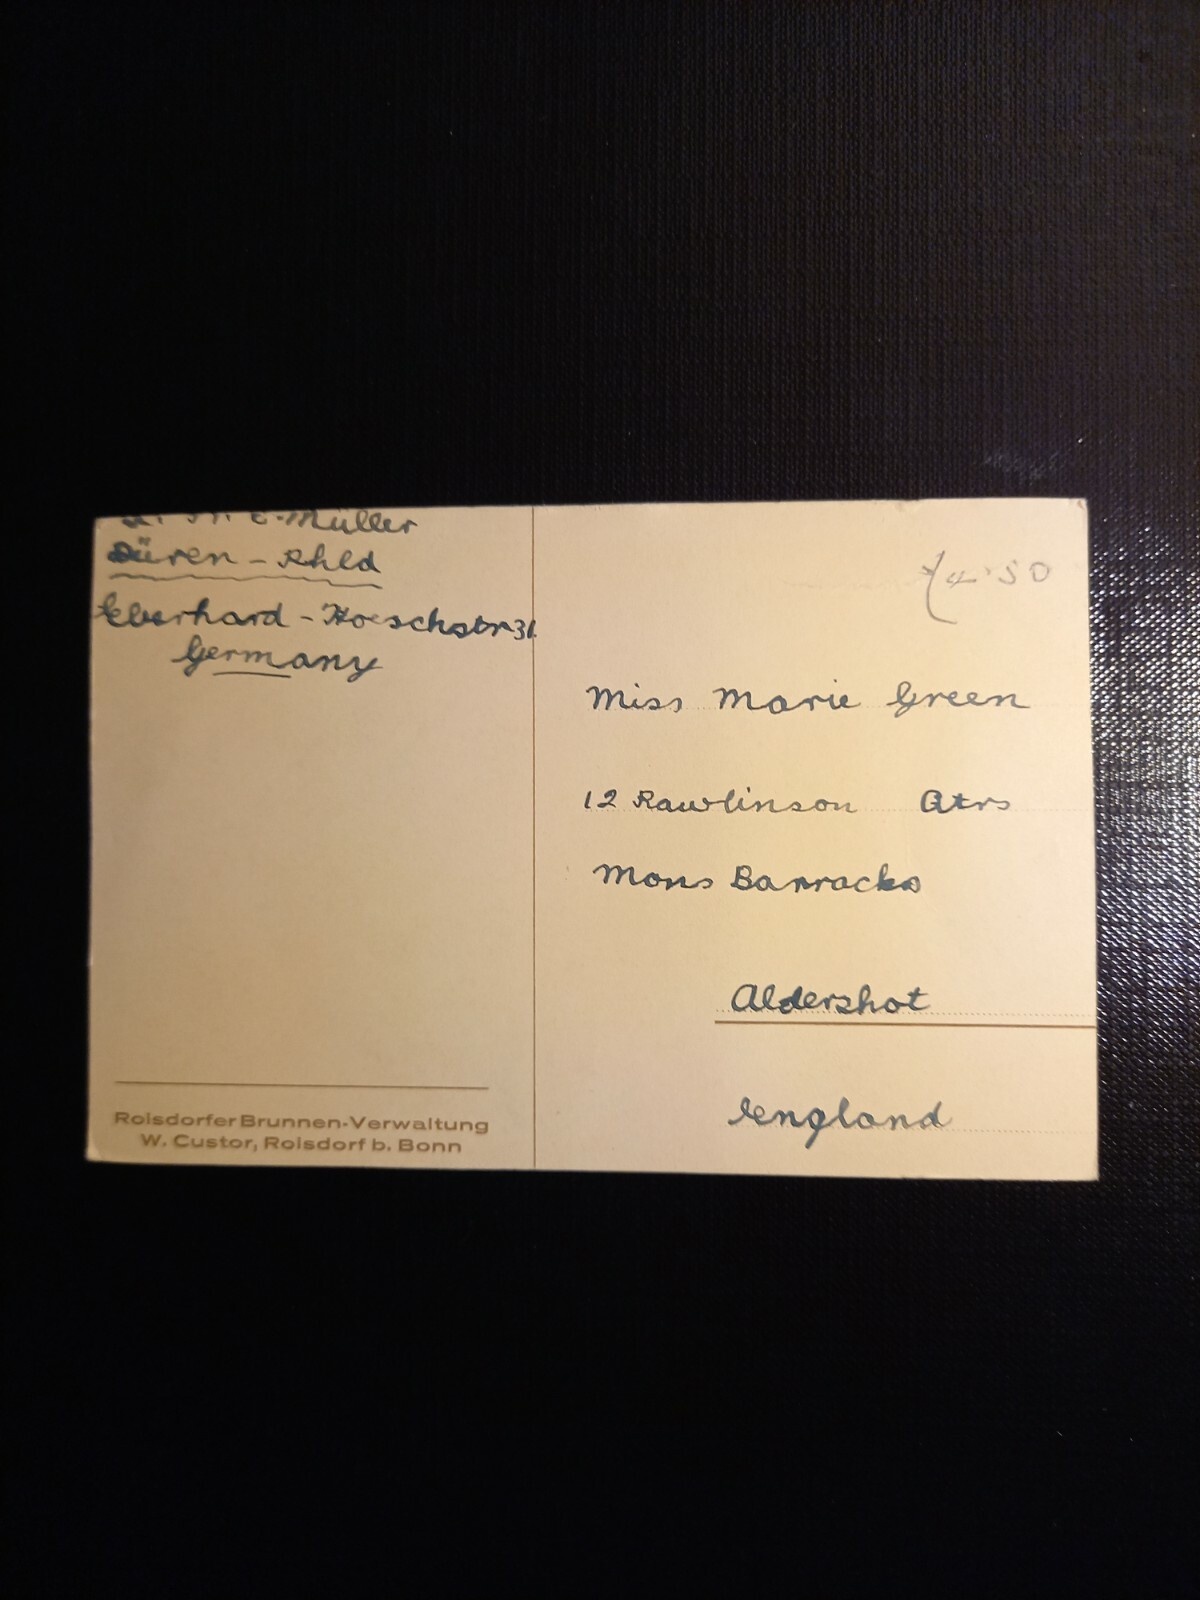 E. Müller
Düren - Rhld
Eberhard - Hoeschstr 31.
Germany
4.50
Miss Marie Green
12 Rawlinson Qtrs
Mons Barracks
Aldershot
England
Roisdorfer Brunnen-Verwaltung
W. Custor, Roisdorf b. Bonn